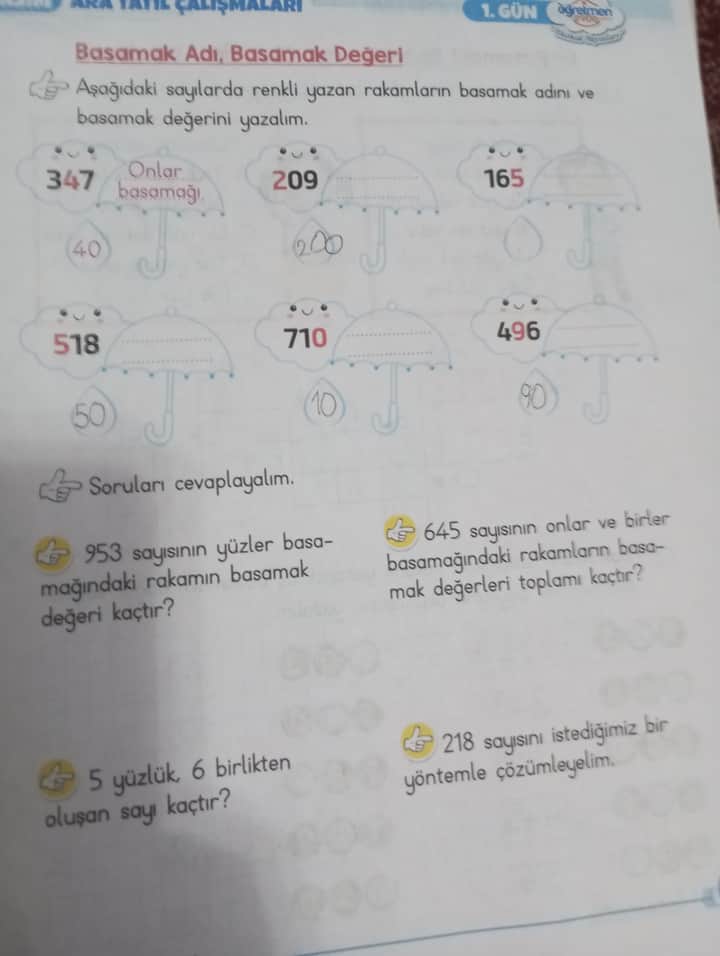 ARA TATİL ÇALIŞMALARI
1. GÜN
öğretmen
Basamak Adı, Basamak Değeri
Aşağıdaki sayılarda renkli yazan rakamların basamak adını ve
basamak değerini yazalım.
347 Onlar basamağı 209 165
40 200
518 710 496
50 10 90
Soruları cevaplayalım.
953 sayısının yüzler basa-
mağındaki rakamın basamak
değeri kaçtır?
645 sayısının onlar ve birler
basamağındaki rakamların basa-
mak değerleri toplamı kaçtır?
5 yüzlük, 6 birlikten
oluşan sayı kaçtır?
218 sayısını istediğimiz bir
yöntemle çözümleyelim.